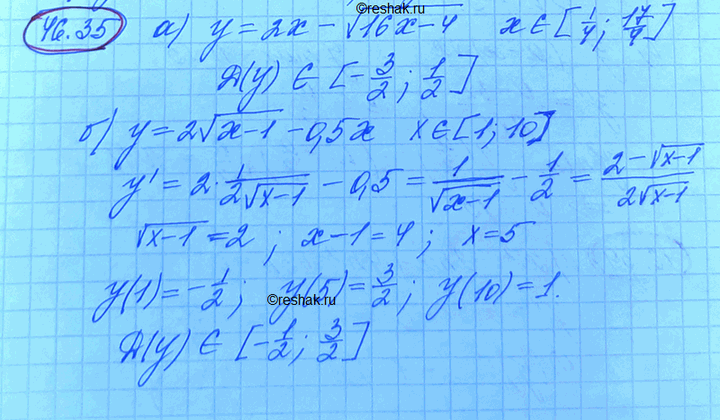 ©reshak.ru
46.35 а) y = 2x - √(16x-4) x∈[1/4; 17/4]
Д(y) ∈ [-3/2; 1/2]
б) y = 2√(x-1) - 0,5x x∈[1; 10]
y' = 2·1/(2√(x-1)) - 0,5 = 1/√(x-1) - 1/2 = (2-√(x-1))/(2√(x-1))
√(x-1) = 2; x-1=4; x=5
y(1) = -1/2; y(5) = 3/2; y(10) = 1.
©reshak.ru
Д(y) ∈ [-1/2; 3/2]